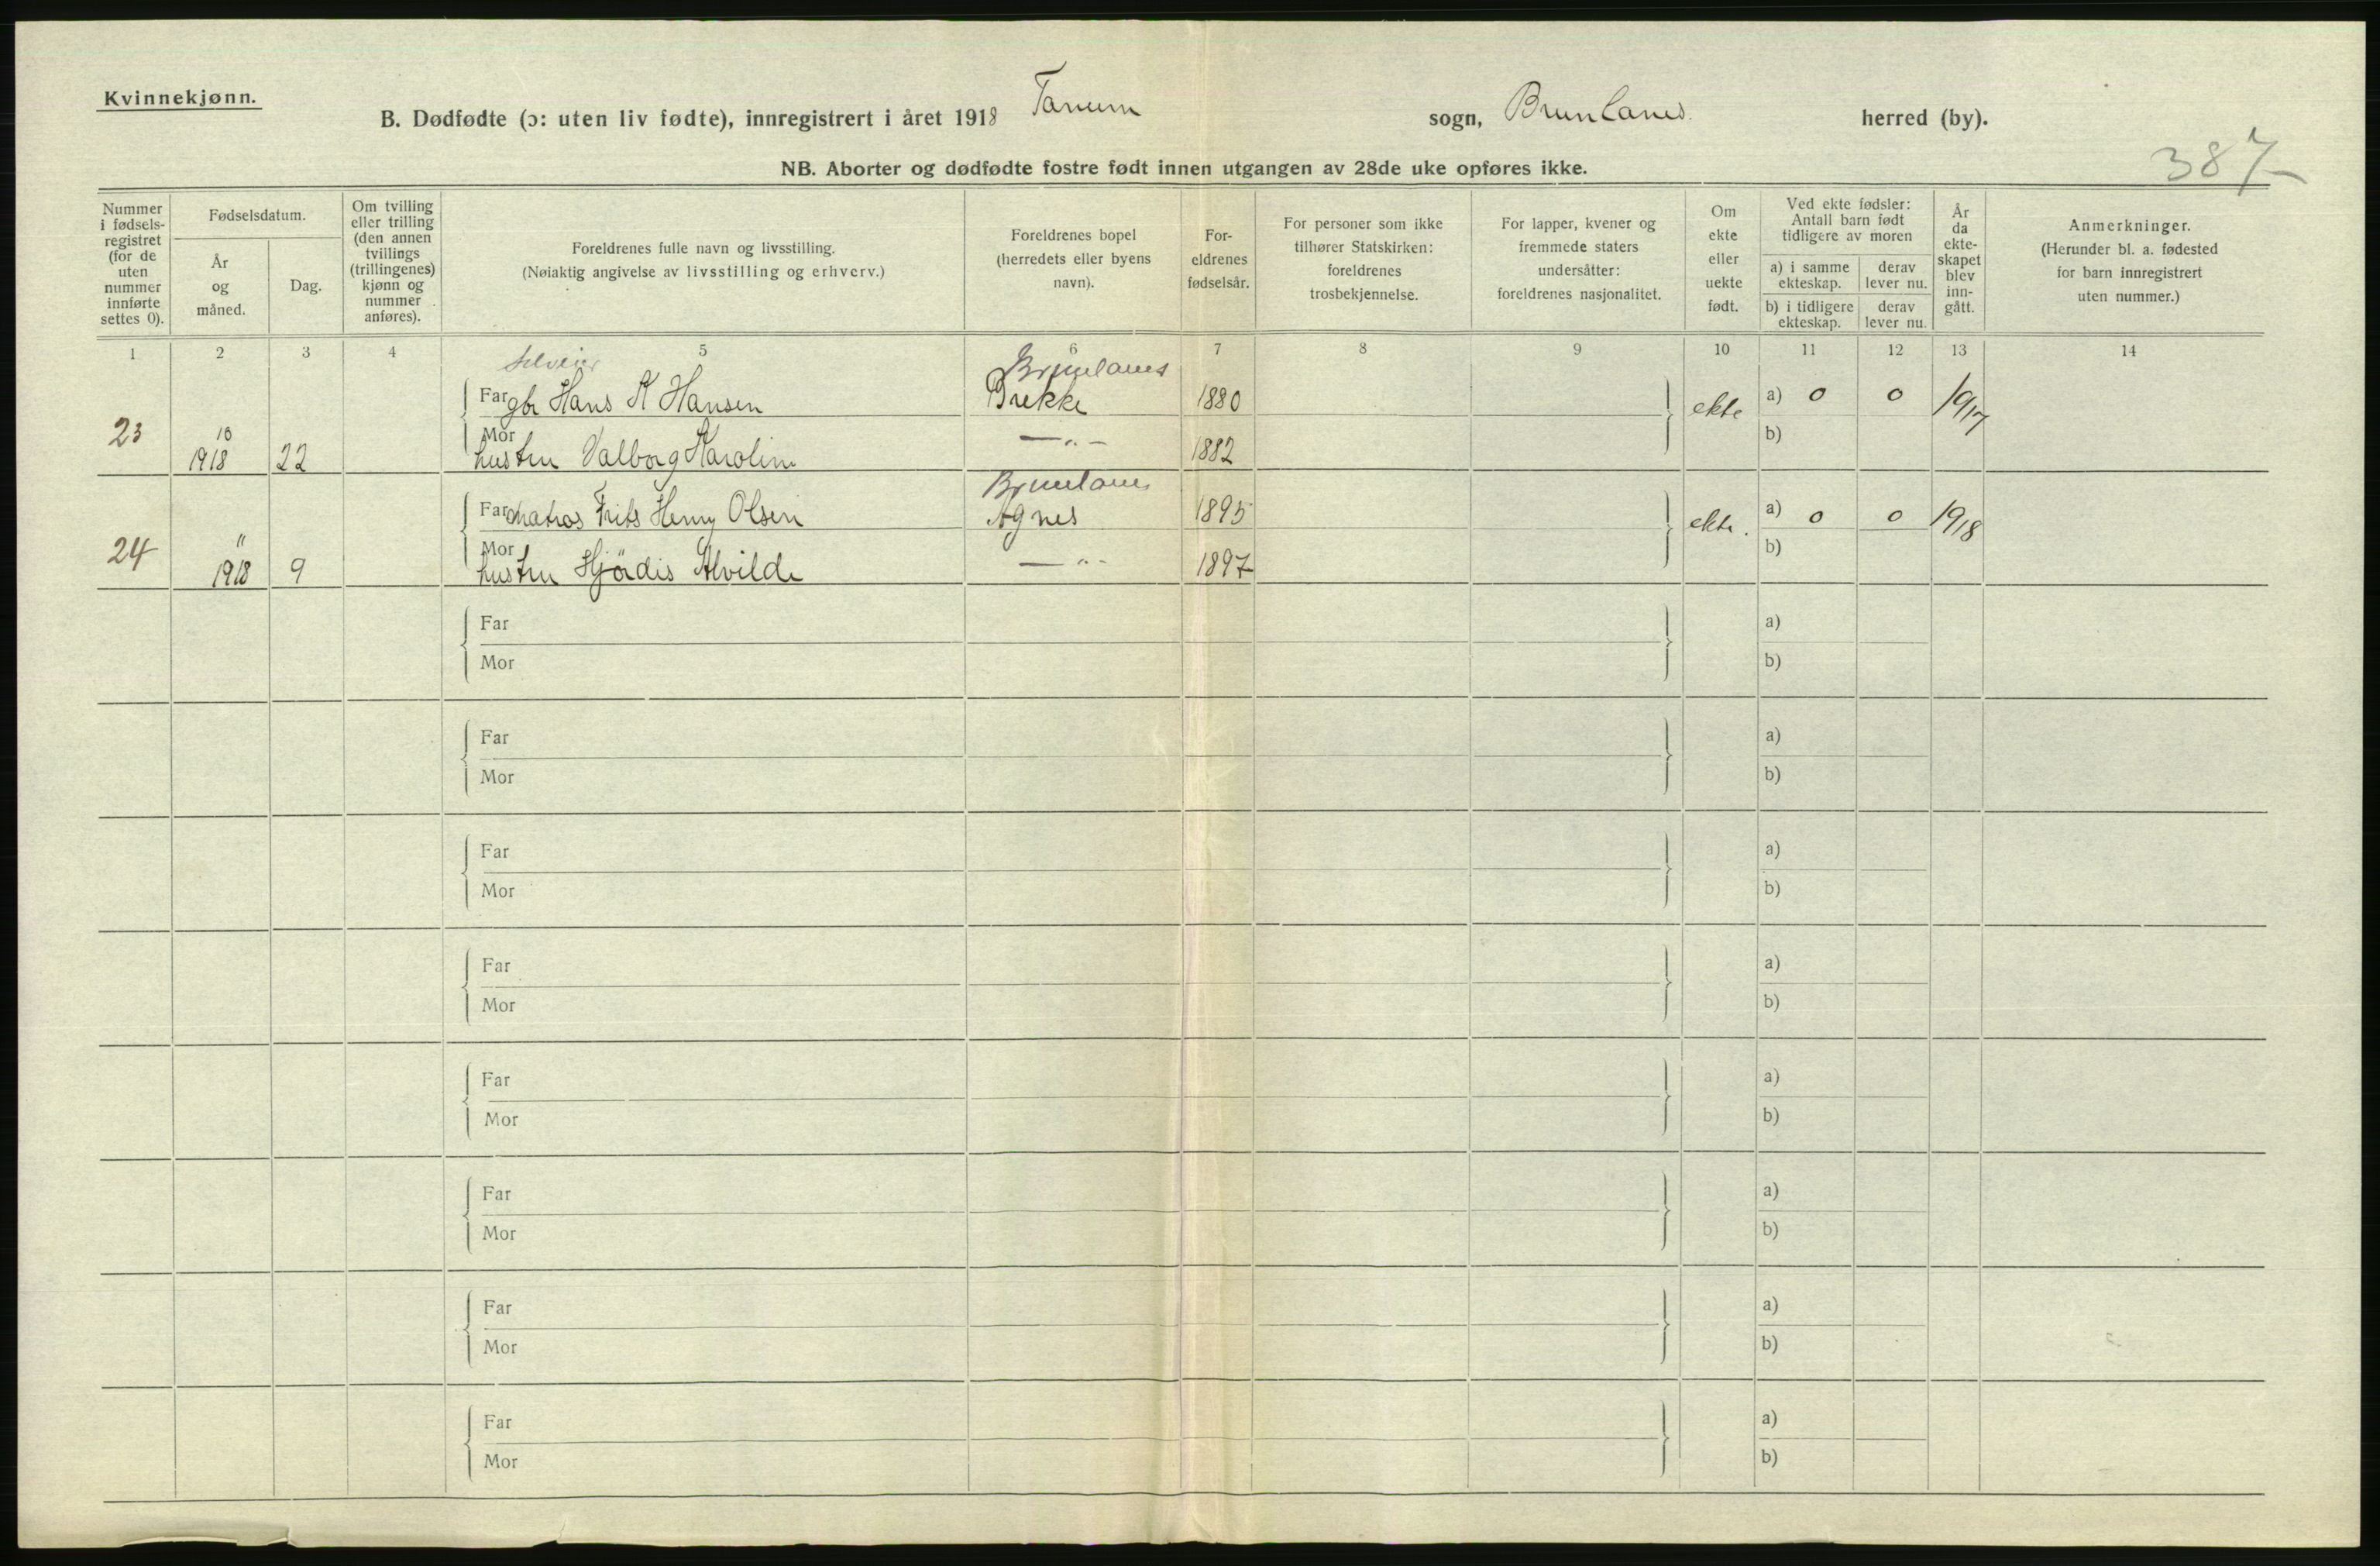 Kvinnekjønn.
B. Dødfødte (ɔ: uten liv fødte), innregistrert i året 1918 Tanum sogn, Brunlanes herred (by).
387
NB. Aborter og dødfødte fostre født innen utgangen av 28de uke opføres ikke.
Nummer i fødselsregistret (for de uten nummer innførte settes 0).
Fødselsdatum.
År og måned.
Dag.
Om tvilling eller trilling (den annen tvillings (trillingenes) kjønn og nummer anføres).
Foreldrenes fulle navn og livsstilling.
(Nøiaktig angivelse av livsstilling og erhverv.)
Foreldrenes bopel (herredets eller byens navn).
Foreldrenes fødselsår.
For personer som ikke tilhører Statskirken: foreldrenes trosbekjennelse.
For lapper, kvener og fremmede staters undersåtter: foreldrenes nasjonalitet.
Om ekte eller uekte født.
Ved ekte fødsler: Antall barn født tidligere av moren
a) i samme ekteskap.
derav lever nu.
b) i tidligere ekteskap.
derav lever nu.
År da ekteskapet blev inngått.
Anmerkninger.
(Herunder bl. a. fødested for barn innregistrert uten nummer.)
1 2 3 4 5 6 7 8 9 10 11 12 13 14
selveier Brunlanes
Far gbr Hans K Hansen Brekke 1880 ekte a) 0 0 1917
23 10 1918 22 Mor hustru Valborg Karoline —"— 1882 b)
Brunlanes
Far Matros Frits Henry Olsen Agnes 1895 ekte. a) 0 0 1918
24 11 1918 9 Mor hustru Hjördis Alvilde —"— 1897 b)
Far a)
Mor b)
Far a)
Mor b)
Far a)
Mor b)
Far a)
Mor b)
Far a)
Mor b)
Far a)
Mor b)
Far a)
Mor b)
Far a)
Mor b)